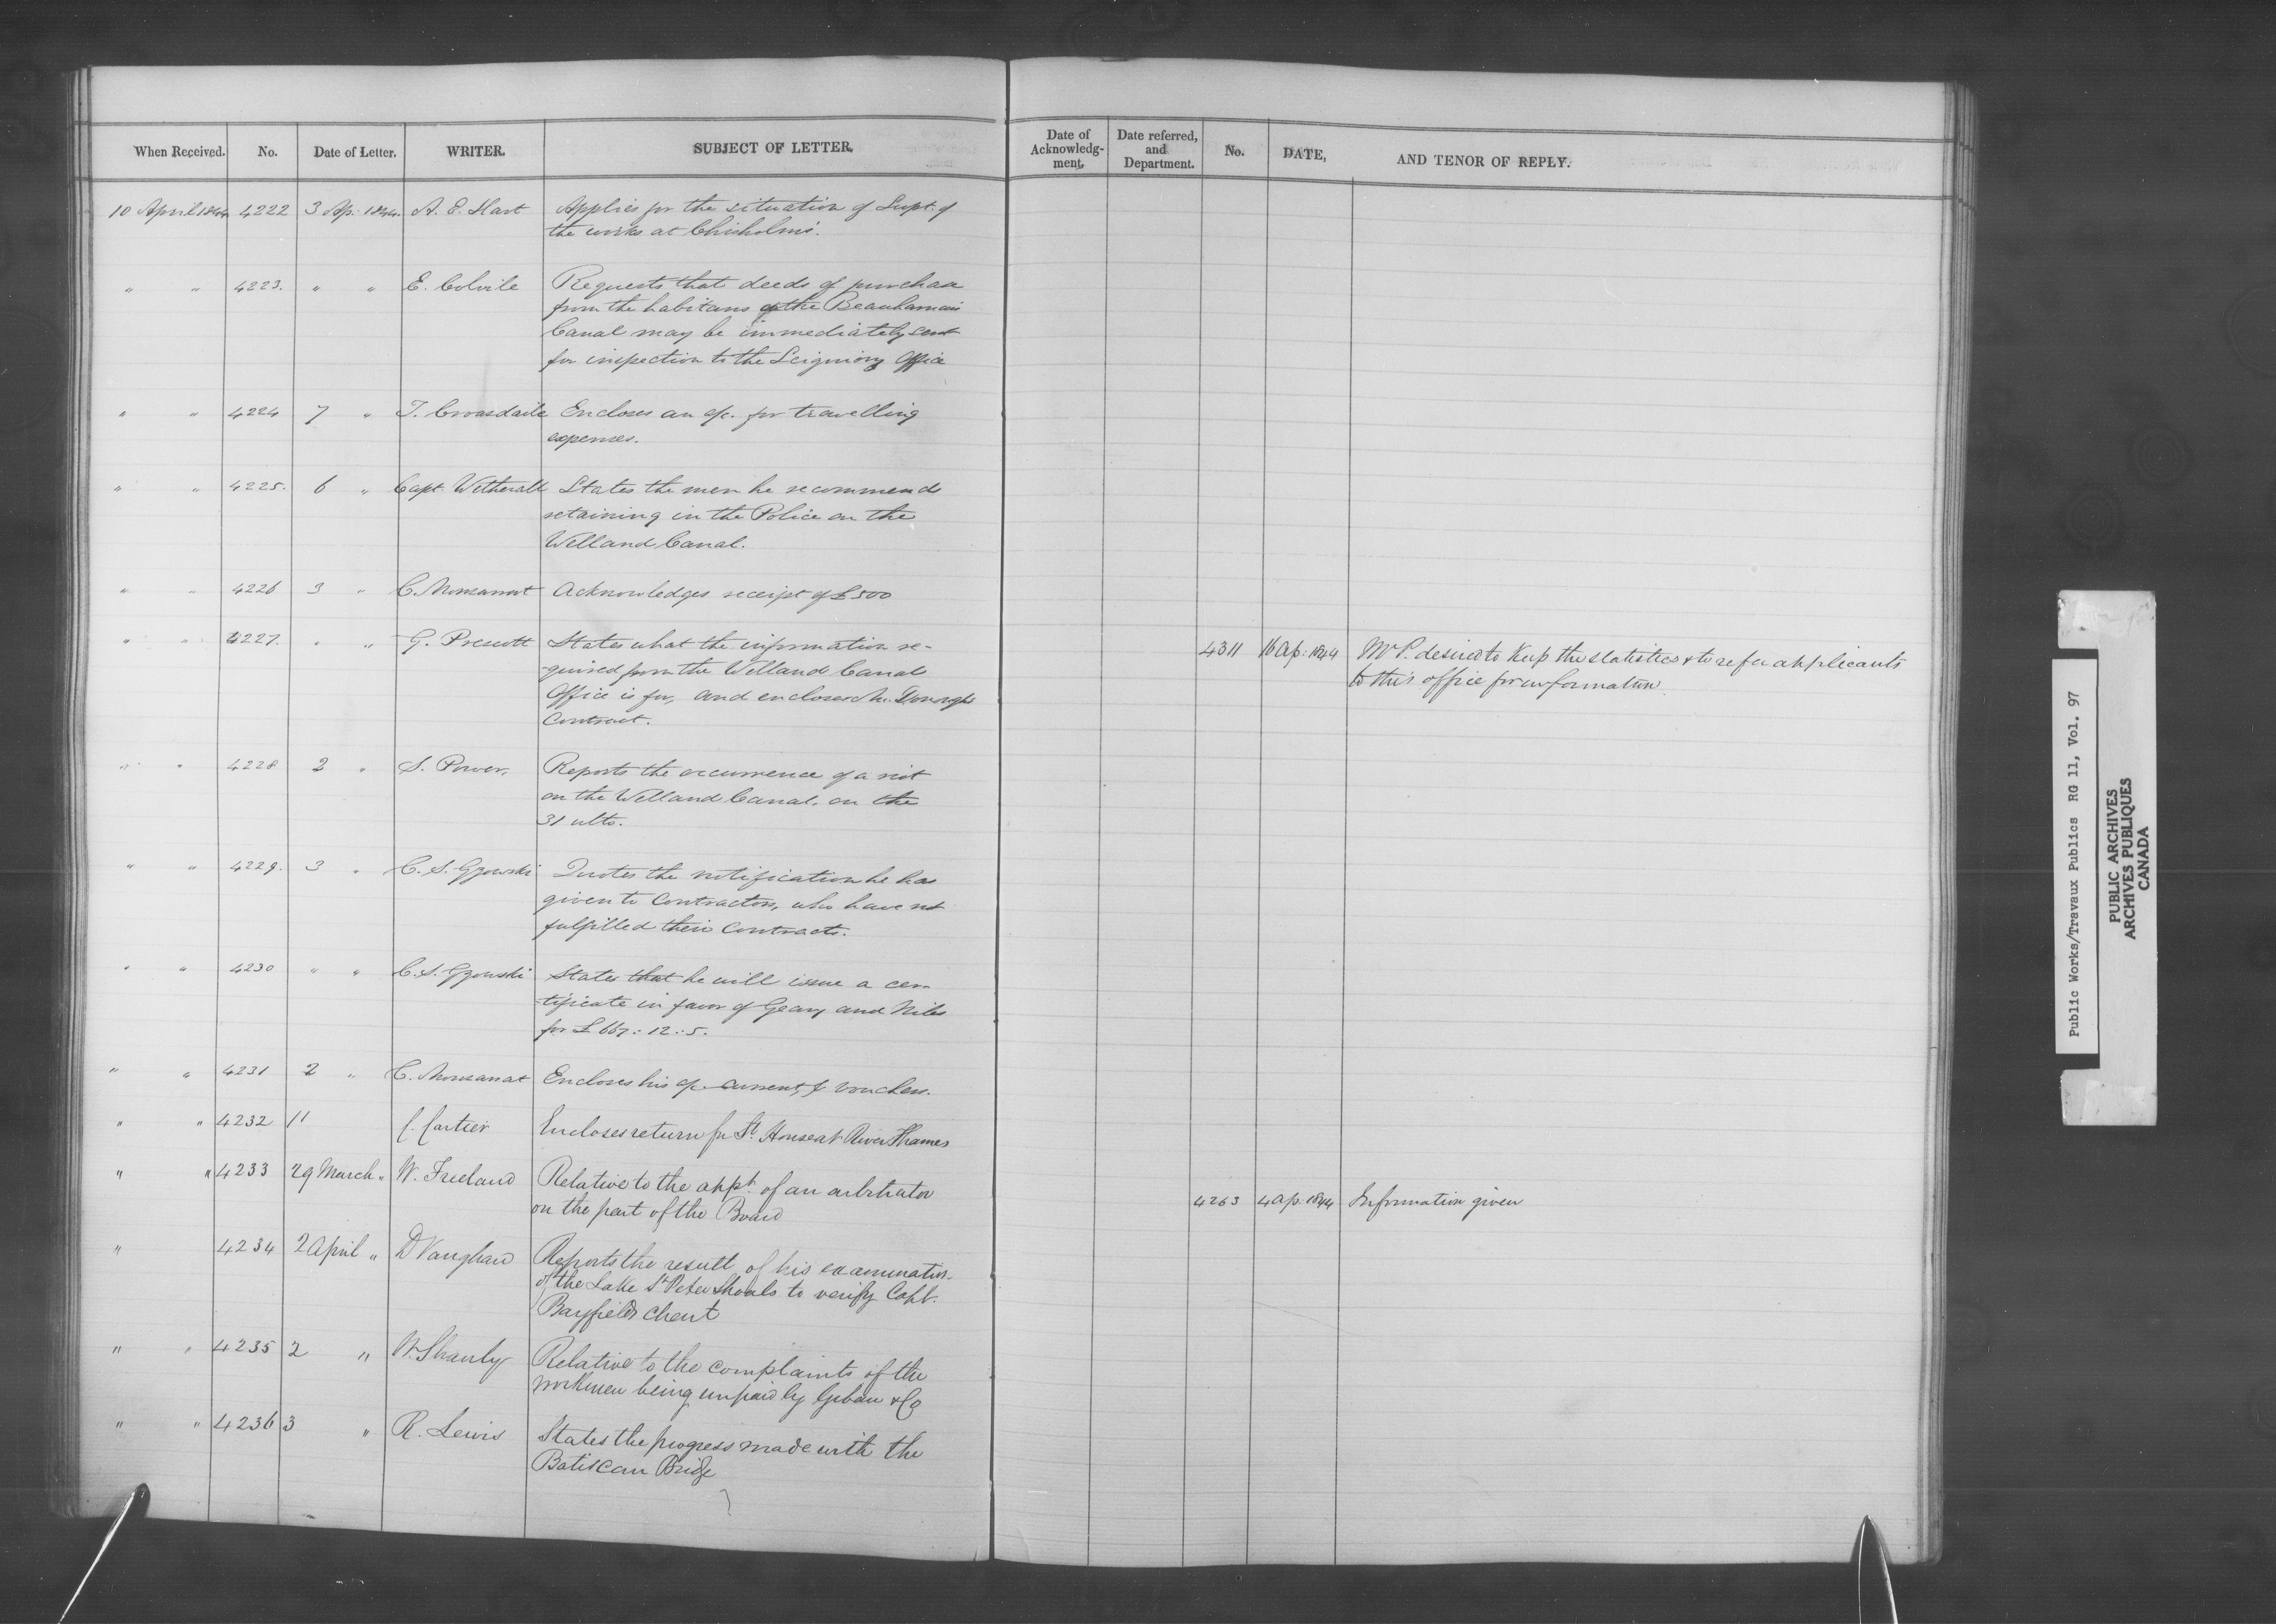 When Received. No. Date of Letter. WRITER. SUBJECT OF LETTER.
10 April 1844 4222 3 Ap. 1844. A. E. Hart Applies for the situation of Supt. of
the works at Chisholm's.
" " 4223. " " E. Colvile Requests that deeds of purchase
from the habitans of the Beauharnois
Canal may be immediately sent
for inspection to the Seigniory Office
" " 4224 7 " T. Croasdaile Encloses an a/c. for travelling
expenses.
" " 4225. 6 " Capt. Wetherall States the men he recommends
retaining in the Police on the
Welland Canal.
" " 4226 3 " C. Monsarrat Acknowledges receipt of £500
" " 4227. " " G. Prescott States what the information re-
-quired from the Welland Canal
Office is for, and encloses
Contract.
" " 4228 2 " S. Power. Reports the occurrence of a riot
on the Welland Canal, on the
31 ulto.
" " 4229. 3 " C. S. Gzowski Quotes the notification he has
given to Contractors, who have not
fulfilled their Contracts.
" " 4230 " " C. S. Gzowski States that he will issue a cer-
-tificate in favor of Geary and Niles
for £667:12:5.
" " 4231 2 " C. Monsarrat Encloses his a/c. current, & vouchers.
" " 4232 11 C. Cartier Encloses return for Lt. House at River Thames
" " 4233 29 March " W. Freeland Relative to the appt. of an arbitrator
on the part of the Board
" 4234 2 April " D Vaughan Reports the result of his examination
of the Lake St Peter Shoals to verify Capt.
Bayfields Chart
" " 4235 2 " W. Shanly Relative to the complaints of the
workmen being unpaid by & Co
" " 4236 3 " R. Lewis States the progress made with the
Batiscan Bridge
Date of
Acknowledg-
ment.
Date referred,
and
Department.
No. DATE, AND TENOR OF REPLY.
4311 16 Ap: 1844 Mr P. desired to keep the statistics & to refer applicants
to this office for information.
4263 4 Ap. 1844 Information given
Public Works/Travaux Publics RG 11, Vol. 97
PUBLIC ARCHIVES
ARCHIVES PUBLIQUES
CANADA